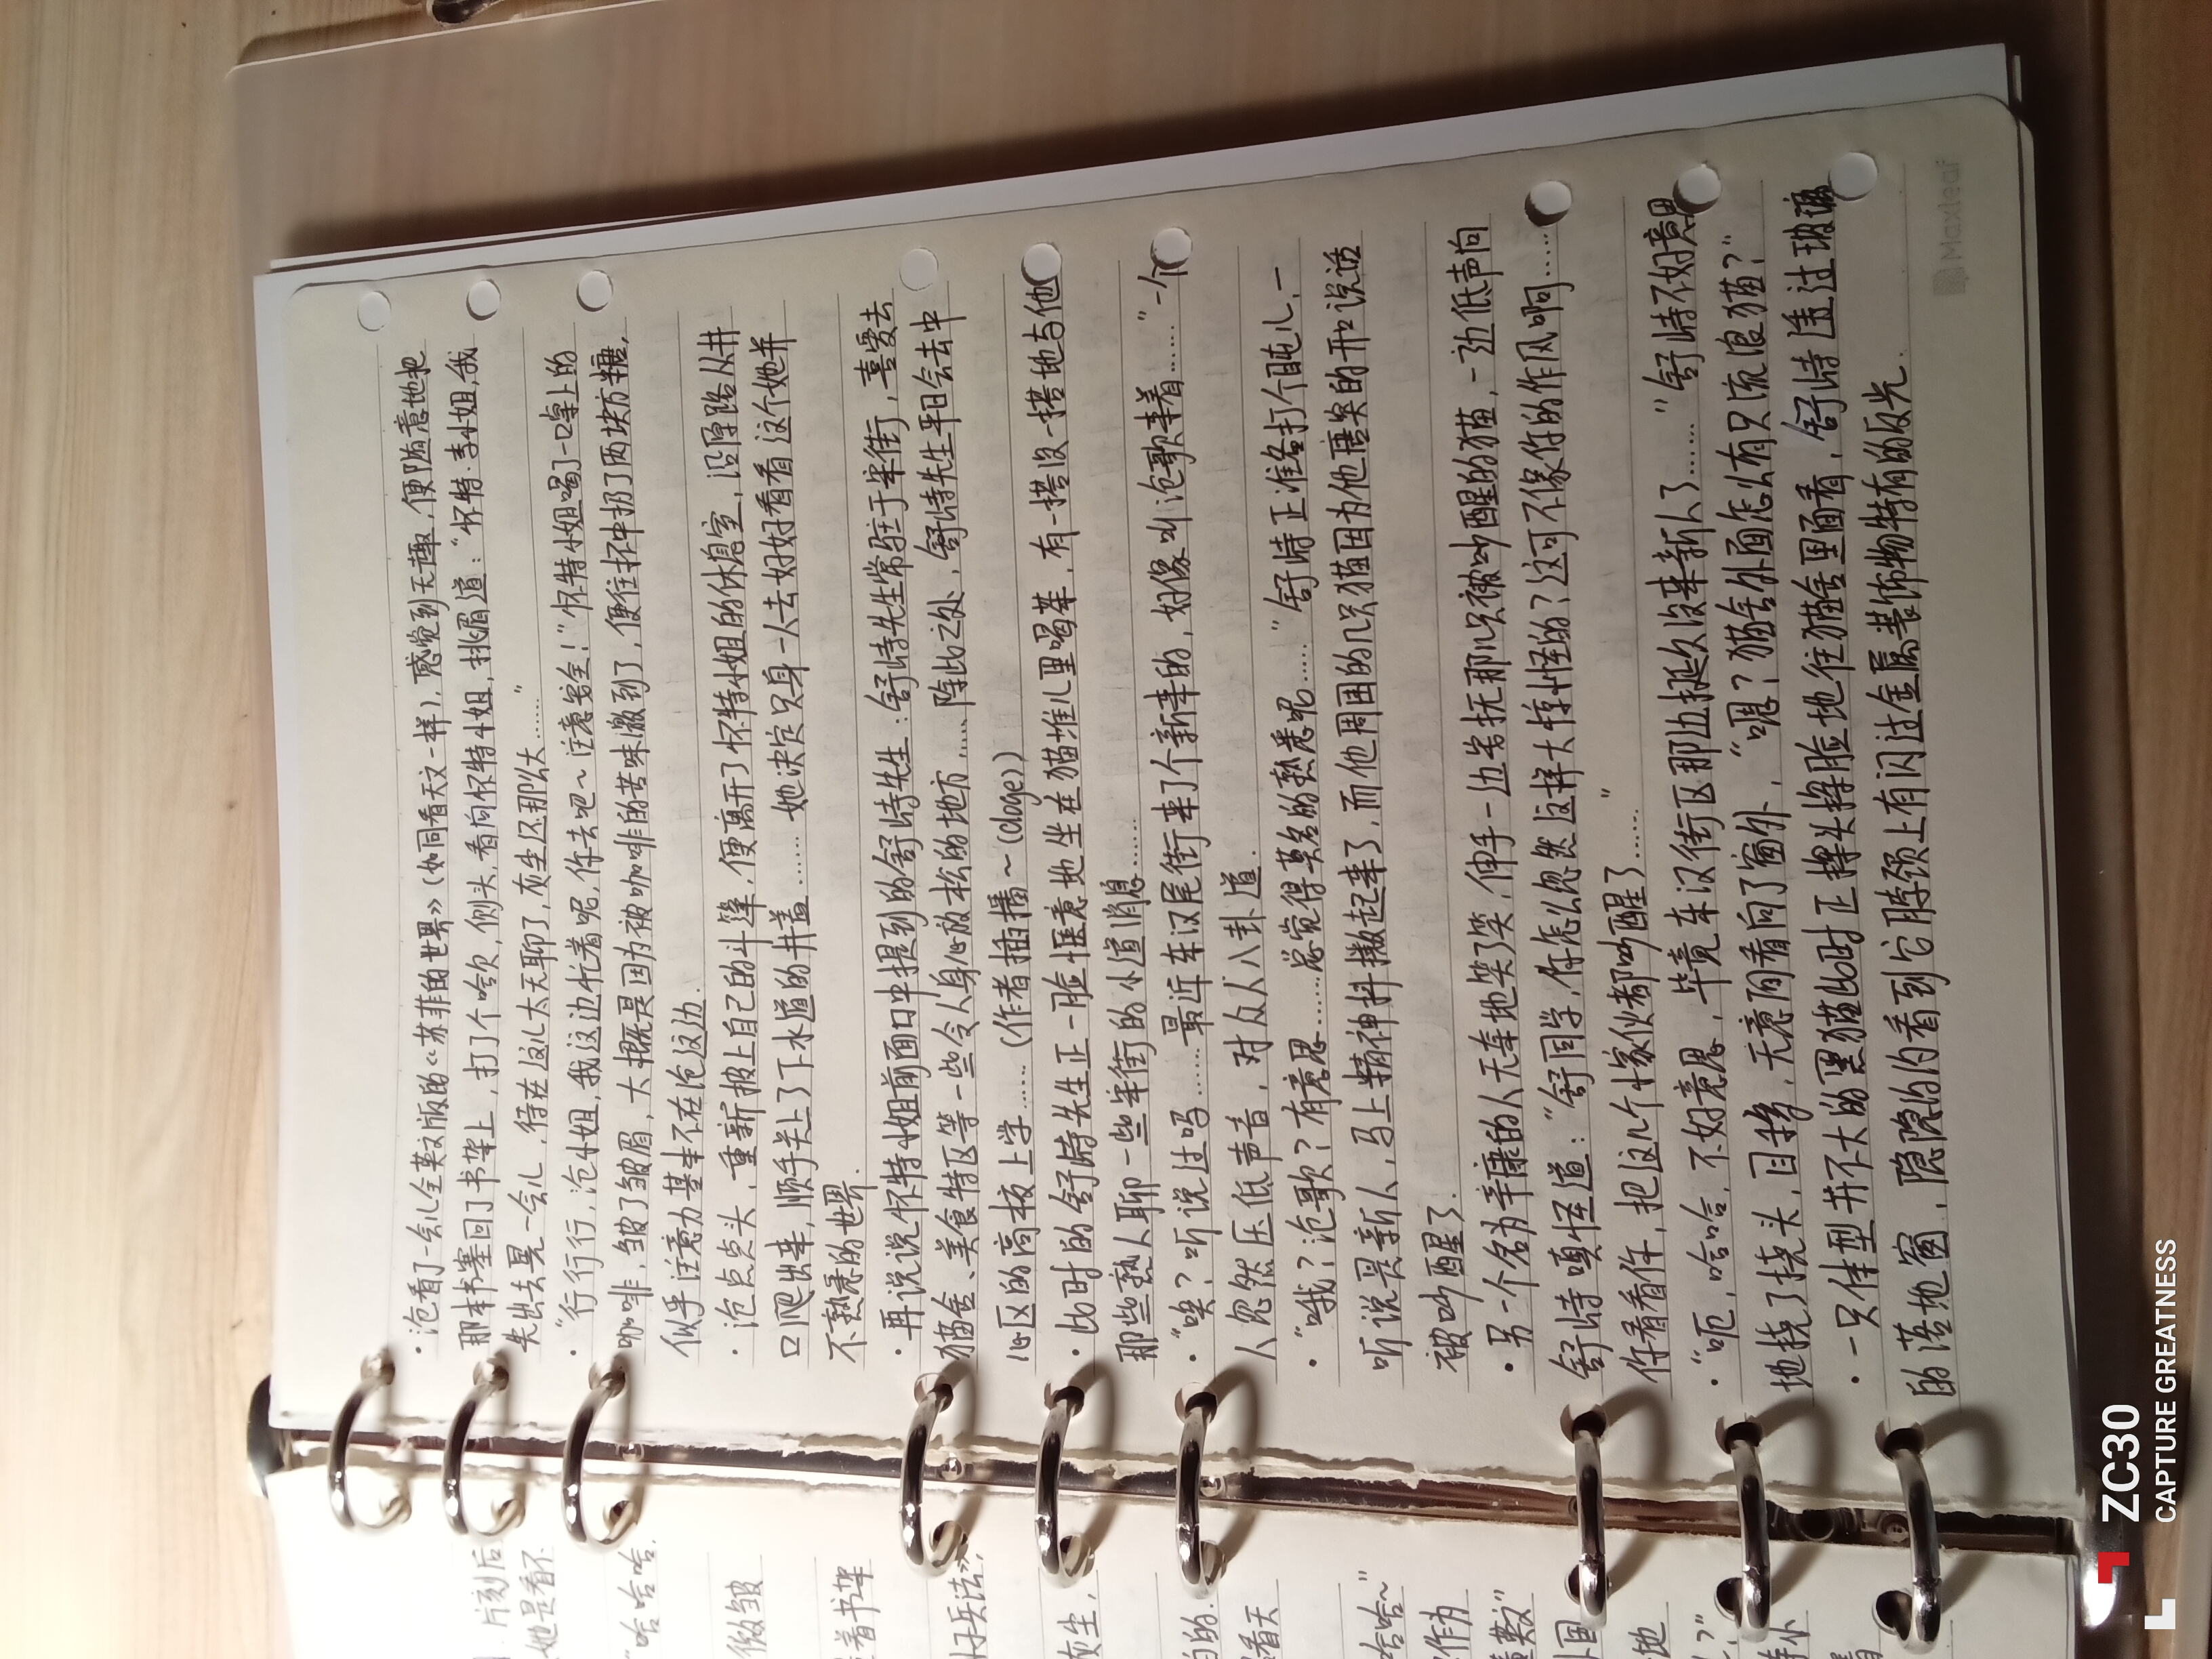 ·沧看了一会儿全英版的《苏菲的世界》(如同看天文一样),感觉到无趣,便随意地把
那本书塞回了书架上,打了个哈欠,侧头,看向怀特小姐,挑眉道:“怀特·李小姐,我
先出去晃一会儿,待在这儿太无聊了,灰尘还那么大……”
·“行行行,沧小姐,我这边忙着呢,你去吧~注意安全!”怀特小姐喝了一口桌上的
咖啡,皱了皱眉,大概是因为被咖啡的苦味激到了,便往杯中扔了两块方糖,
似乎注意力基本不在沧这边.
·沧点点头,重新披上自己的斗篷,便离开了怀特小姐的休息室,沿原路从井
口爬出来,顺手关上了下水道的井盖……她决定只身一人去好好看看这个她并
不熟悉的世界.
·再说说怀特小姐前面口中提到的舒特先生:舒特先生常驻于半街,喜爱去
猫舍、美食特区等一些令人身心放松的地方……除此之处,舒特先生平日会去中
心区的高校上学……(作者插播~(doge))
·此时的舒特先生正一脸惬意地坐在猫堆儿里喝茶,有一搭没一搭地与他
那些熟人聊一些半街的小道消息……
·“唉?听说过吗……最近车汉尾街来了个新来的,好像叫沧歌来着……”一个
人忽然压低声音,对众人八卦道.
·“哦?沧歌?有意思……总觉得莫名的熟悉呢……”舒特正准备打个盹儿,一
听说是新人,马上精神抖擞起来了,而他周围的几只猫因为他唐突的开口说话
被叫醒了.
·另一个名为辛康的人无奈地笑了笑,伸手一边安抚那只被吵醒的猫,一边低声向
舒特嗔怪道:“舒同学,你怎么忽然这样大惊小怪的?这可不像你的作风啊……
你看看你,把这几个小家伙都叫醒了……”
·“呃,哈哈,不好意思,毕竟车汉街区那边挺久没来新人了……”舒特不好意思
地挠了挠头,目移,无意间看向了窗外,“嗯?猫舍外面怎么有只流浪猫?”
·一只体型并不大的黑猫此时正探头探脑地往猫舍里面看,舒特透过玻璃
的落地窗,隐隐约约看到它脖颈上有闪过金属装饰物特有的反光.
Maxleaf
片刻后
她是看不
“哈哈哈.
微皱
着书架
孙子兵法》,
灰尘,
看天
哈哈~”
作为
ZC30
CAPTURE GREATNESS